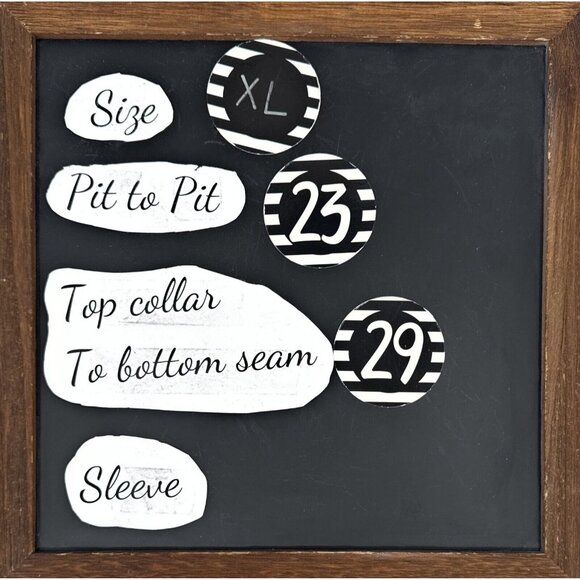 Size XL
Pit to Pit 23
Top collar
To bottom seam 29
Sleeve